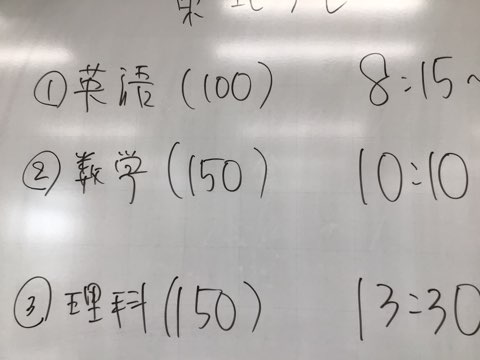 ①英語(100) 8:15~
②数学(150) 10:10
③理科(150) 13:30